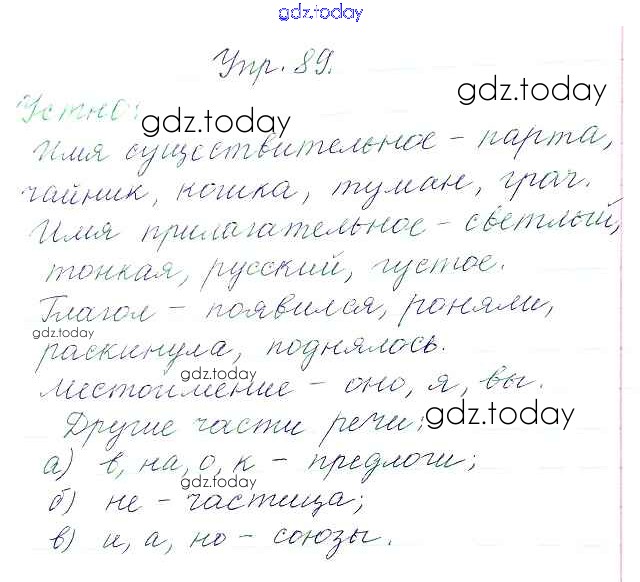 gdz.today
Упр. 89.
gdz.today
Устно:
gdz.today
Имя существительное - парта,
чайник, кошка, туман, грач.
Имя прилагательное - светлый,
тонкая, русский, густое.
Глагол - появился, роняли,
gdz.today
раскинула, поднялось.
gdz.today
Местоимение - оно, я, вы.
Другие части речи:
gdz.today
а) в, на, о, к - предлоги;
gdz.today
б) не - частица;
в) и, а, но - союзы.